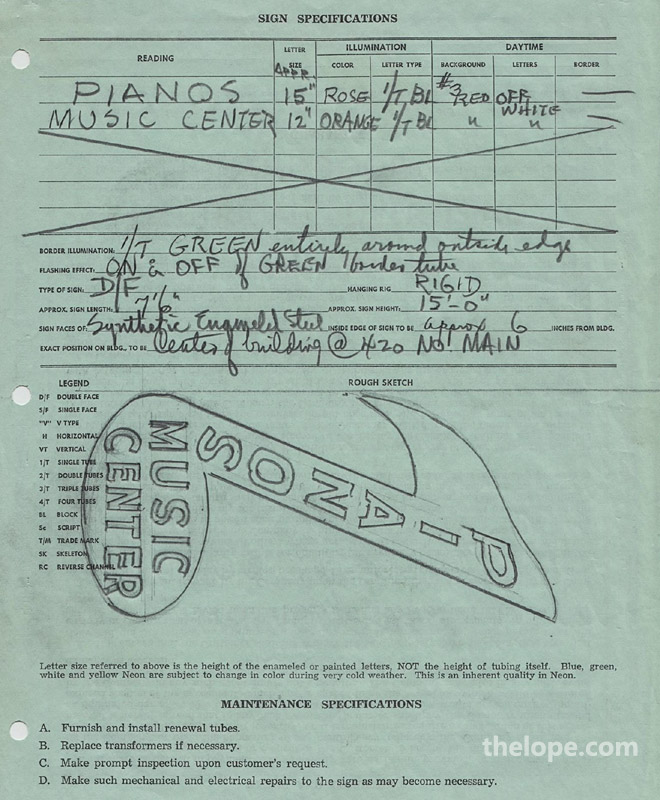 SIGN SPECIFICATIONS
READING
LETTER SIZE
ILLUMINATION
DAYTIME
COLOR
LETTER TYPE
BACKGROUND
LETTERS
BORDER
APPR.
PIANOS 15" ROSE 1/T BL #3 RED OFF WHITE
MUSIC CENTER 12" ORANGE 1/T BL " "
BORDER ILLUMINATION: 1/T GREEN entirely around outside edge
FLASHING EFFECT: ON & OFF of GREEN border tube
TYPE OF SIGN: D/F HANGING RIG. RIGID
APPROX. SIGN LENGTH: 7'6" APPROX. SIGN HEIGHT: 15'-0"
SIGN FACES OF: Synthetic Enameled Steel INSIDE EDGE OF SIGN TO BE approx 6 INCHES FROM BLDG.
EXACT POSITION ON BLDG. TO BE Center of building @ 420 NO. MAIN
LEGEND
ROUGH SKETCH
D/F DOUBLE FACE
S/F SINGLE FACE
"V" V TYPE
H HORIZONTAL
VT VERTICAL
1/T SINGLE TUBE
2/T DOUBLE TUBES
3/T TRIPLE TUBES
4/T FOUR TUBES
BL BLOCK
Sc SCRIPT
T/M TRADE MARK
SK SKELETON
RC REVERSE CHANNEL
PIANOS
MUSIC
CENTER
Letter size referred to above is the height of the enameled or painted letters, NOT the height of tubing itself. Blue, green,
white and yellow Neon are subject to change in color during very cold weather. This is an inherent quality in Neon.
MAINTENANCE SPECIFICATIONS
A. Furnish and install renewal tubes.
B. Replace transformers if necessary.
C. Make prompt inspection upon customer's request.
D. Make such mechanical and electrical repairs to the sign as may become necessary.
thelope.com